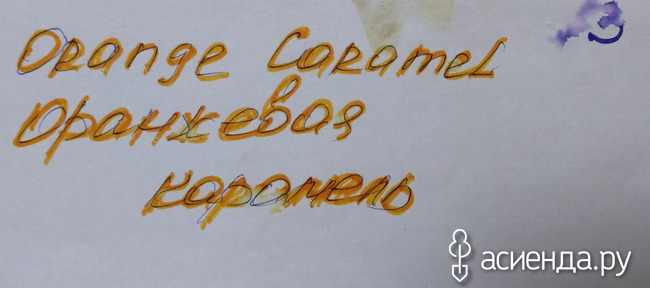 Orange Caramel
Оранжевая
карамель
асиенда.ру